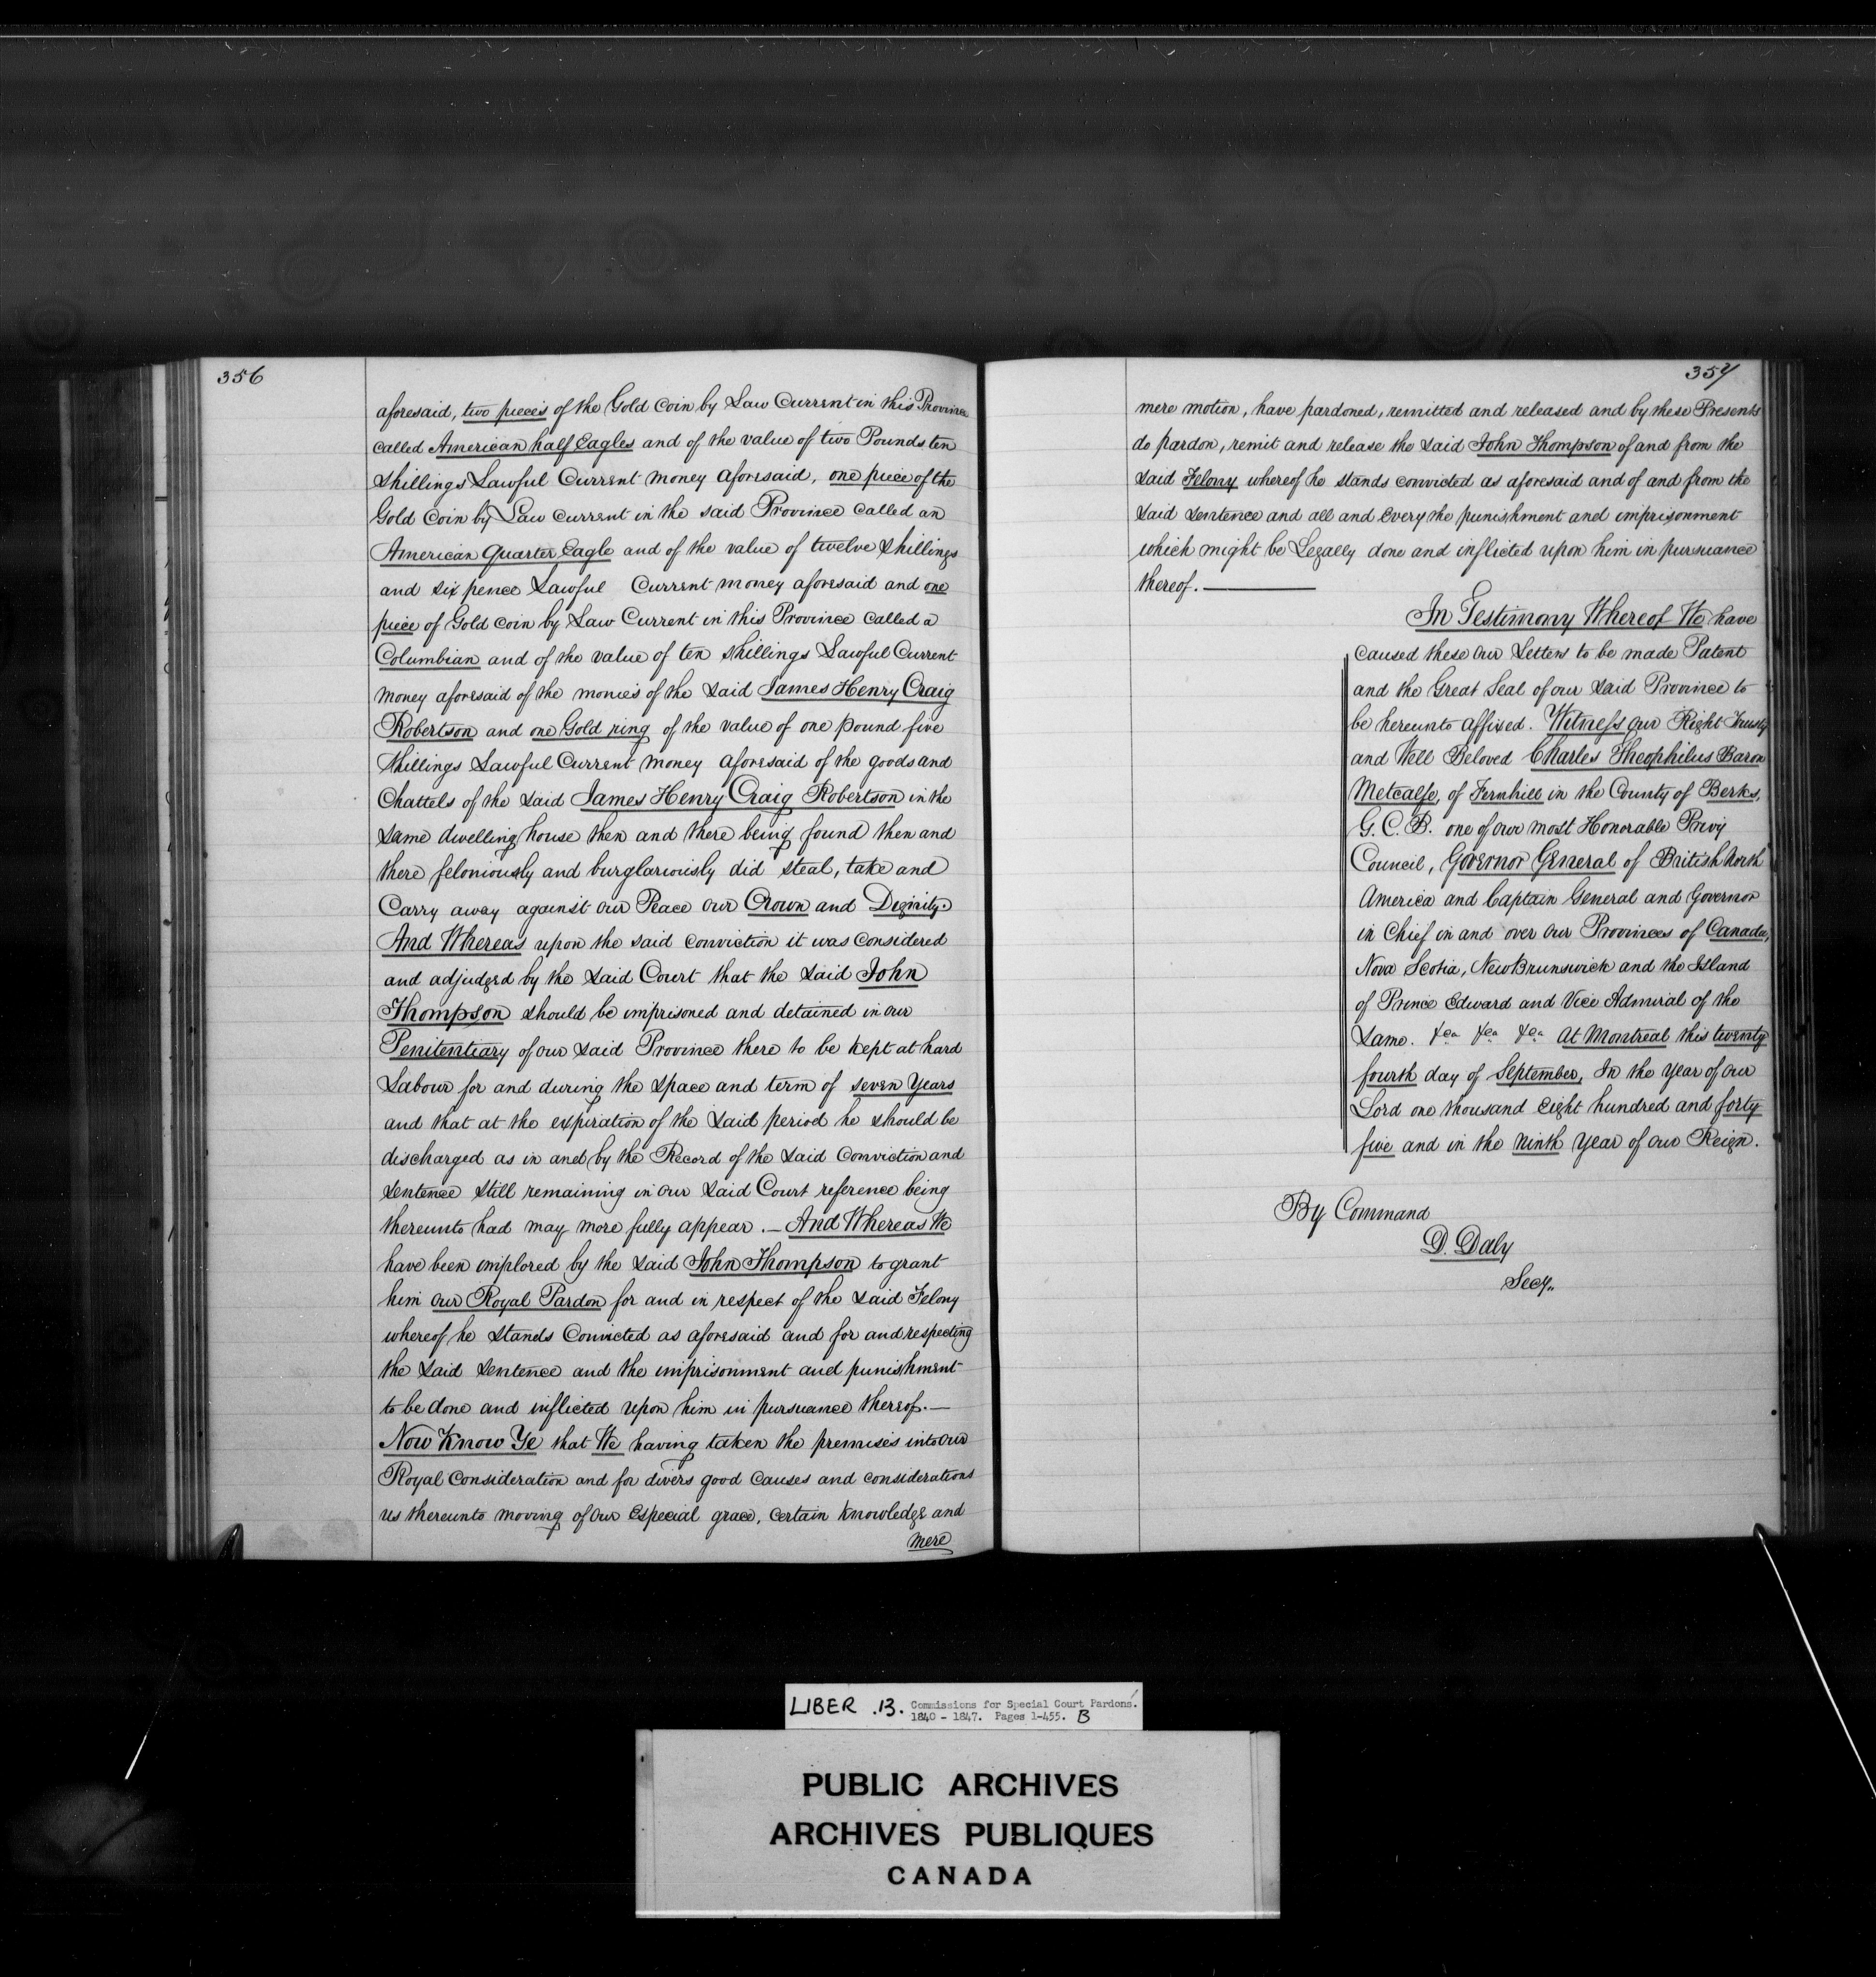 356
aforesaid, two pieces of the Gold Coin by Law Current in this Province
called American half Eagles and of the value of two Pounds ten
shillings Lawful Current money aforesaid, one piece of the
Gold Coin by Law current in the said Province called an
American Quarter Eagle and of the value of twelve shillings
and six pence Lawful Current money aforesaid and one
piece of Gold coin by Law Current in this Province called a
Columbian and of the value of ten shillings Lawful Current
money aforesaid of the monies of the said James Henry Craig
Robertson and one Gold ring of the value of one pound five
shillings Lawful Current money aforesaid of the goods and
Chattels of the said James Henry Craig Robertson in the
same dwelling house then and there being found then and
there feloniously and burglariously did steal, take and
Carry away against our Peace our Crown and Dignity.
And Whereas upon the said conviction it was considered
and adjudged by the said Court that the said John
Thompson should be imprisoned and detained in our
Penitentiary of our said Province there to be kept at hard
Labour for and during the space and term of seven Years
and that at the expiration of the said period he should be
discharged as in and by the Record of the said Conviction and
sentence still remaining in our said Court reference being
thereunto had may more fully appear. — And Whereas We
have been implored by the said John Thompson to grant
him our Royal Pardon for and in respect of the said Felony
whereof he stands Convicted as aforesaid and for and respecting
the said sentence and the imprisonment and punishment
to be done and inflicted upon him in pursuance thereof. —
Now Know Ye that We having taken the premises into our
Royal Consideration and for divers good Causes and considerations
us thereunto moving of our Especial grace, certain knowledge and
mere
357
mere motion, have pardoned, remitted and released and by these Presents
do pardon, remit and release the said John Thompson of and from the
said Felony whereof he stands convicted as aforesaid and of and from the
said sentence and all and Every the punishment and imprisonment
which might be Legally done and inflicted upon him in pursuance
thereof. —
In Testimony Whereof We have
caused these our Letters to be made Patent
and the Great Seal of our said Province to
be hereunto affixed. Witness our Right Trusty
and Well Beloved Charles Theophilus Baron
Metcalfe, of Fernhill in the County of Berks,
G. C. B. one of our most Honorable Privy
Council, Governor General of British North
America and Captain General and Governor
in Chief in and over our Provinces of Canada,
Nova Scotia, New Brunswick and the Island
of Prince Edward and Vice Admiral of the
Same. &ca &ca &ca At Montreal this twenty
fourth day of September, In the Year of our
Lord one thousand Eight hundred and forty
five and in the ninth Year of our Reign.
By Command
D. Daly
Secy.
LIBER .13. Commissions for Special Court Pardons.
1840 - 1847. Pages 1-455. B
PUBLIC ARCHIVES
ARCHIVES PUBLIQUES
CANADA